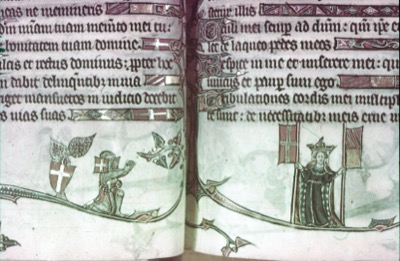 as ne memineris
m misam tuam memento mei tu
bonitatem tuam domine
ulcis et rectus dominus: propter hoc
m dabit delinquentibus in uia
iriget mansuetos in iudicio docebit
es uias suas
illis
Oculi mei semper ad dnm: qm ipe e
let de laqueo pedes meos
Respice in me et miserere mei: qu
unicus et paup sum ego
Tribulationes cordis mei multipl
te sunt: de necessitatibus meis erue